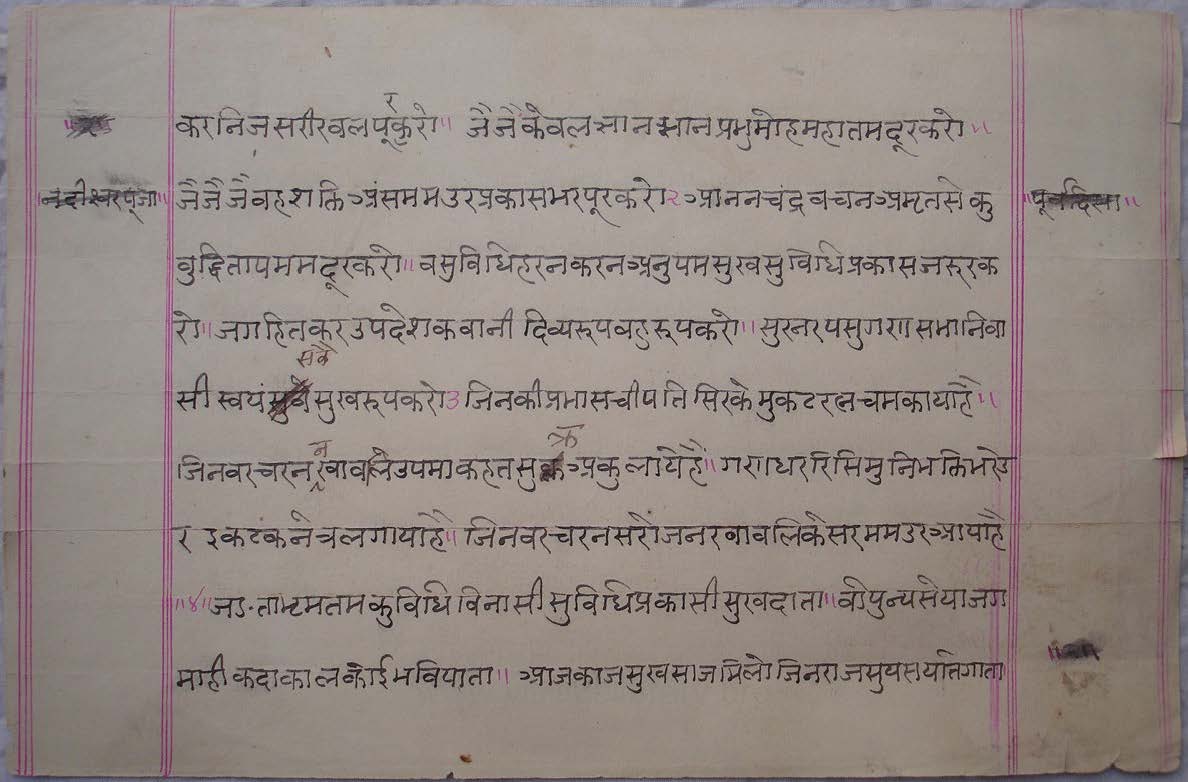 करनिजसरीरवलपूरकरो॥ जैजैकेवलज्ञानभानप्रभुमोहमहातमदूरकरो॥
नंदीश्वरपूजा
जैजैजैवहशक्तिअंसममउरप्रकासभरपूरकरो२आननचंद्रवचनअमृतसेकु
पूर्वदिसा॥
वुद्धितापममदूरकरो॥वसुविधिहरनकरनअनुपमसुखसुविधिप्रकासजरूरक
रो॥जगहितकरउपदेशकवानी दिव्यरूपवहुरूपकरो॥सुरनरपसुगणसभानिवा
सीस्वयंसर्वैसुखरूपकरो३जिनकीप्रभासचीपतिसिरकेमुकटरत्नचमकायाहै॥
जिनवरचरननखावलिउपमाकहतसुअकुलायेहैं॥गणधररिसिमुनिभक्तिभरेउ
रइकटंकनेत्रलगायाहै॥जिनवरचरनसरोजनखावलिकेसरममउरआयाहै
॥४॥जडताष्टमतमकुविधिविनासीसुविधिप्रकासीसुखदाता॥वोपुन्यसेयाजग
माहीकदाकालकोईभविपाता॥ आजकाजसुखसाजमिलोजिनराजसुयस